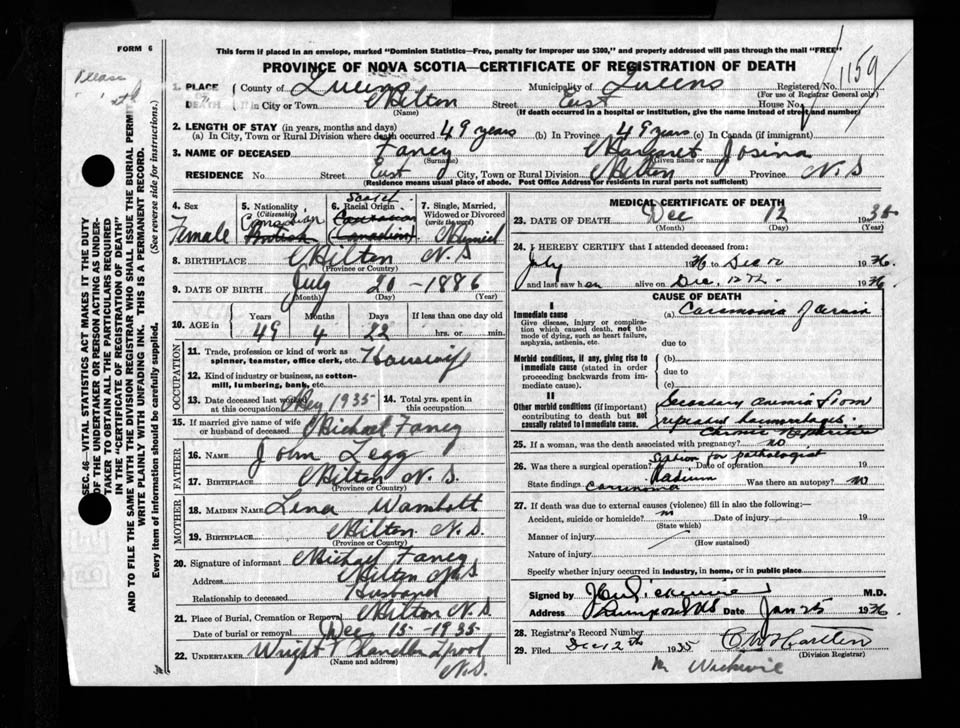 FORM 6
This form if placed in an envelope, marked "Dominion Statistics—Free, penalty for improper use $300," and properly addressed will pass through the mail "FREE"
PROVINCE OF NOVA SCOTIA—CERTIFICATE OF REGISTRATION OF DEATH
1159
1. PLACE OF DEATH County of Queens Municipality of Queens Registered No.
(For use of Registrar General only)
in City or Town Milton Street East House No.
(Name) (If death occurred in a hospital or institution, give the name instead of street and number)
2. LENGTH OF STAY (in years, months and days)
(a) In City, Town or Rural Division where death occurred 49 years (b) In Province 49 years (c) In Canada (if immigrant)
3. NAME OF DECEASED Fancy Margaret Josina
(Surname) (Given name or names)
RESIDENCE No. Street East City, Town or Rural Division Milton Province N.S
(Residence means usual place of abode. Post Office Address for residents in rural parts not sufficient)
4. Sex Female
5. Nationality (Citizenship) Canadian British
6. Racial Origin Scotch (Canadian)
7. Single, Married, Widowed or Divorced (write the word) Married
8. BIRTHPLACE Milton N.S
(Province or Country)
9. DATE OF BIRTH July 20 - 1886
(Month) (Day) (Year)
10. AGE in Years Months Days If less than one day old
49 4 22 hrs. or min.
OCCUPATION
11. Trade, profession or kind of work as spinner, teamster, office clerk, etc. Housewife
12. Kind of industry or business, as cotton-mill, lumbering, bank, etc.
13. Date deceased last worked at this occupation May 1935
14. Total yrs. spent in this occupation
15. If married give name of wife or husband of deceased Michael Fancy
FATHER
16. NAME John Legg
17. BIRTHPLACE Milton N.S.
(Province or Country)
MOTHER
18. MAIDEN NAME Lena Wambolt
19. BIRTHPLACE Milton N.S.
(Province or Country)
20. Signature of informant Michael Fancy
Address Milton N.S
Relationship to deceased Husband
21. Place of Burial, Cremation or Removal Milton N.S.
Date of burial or removal Dec 15-1935
22. UNDERTAKER Wright Chandler Lpool
(Name and address) N.S.
MEDICAL CERTIFICATE OF DEATH
23. DATE OF DEATH Dec 12 1935
(Month) (Day) (Year)
24. I HEREBY CERTIFY that I attended deceased from:
July 1936 to Dec 12 1936.
and last saw her alive on Dec. 12th. 1936.
CAUSE OF DEATH
I
Immediate cause (a) Carcinoma
Give disease, injury or complication which caused death, not the mode of dying, such as heart failure, asphyxia, asthenia, etc.
due to
Morbid conditions, if any, giving rise to immediate cause (stated in order proceeding backwards from immediate cause).
(b)
due to
(c)
II
Other morbid conditions (if important) contributing to death but not causally related to immediate cause.
Secondary anemia from
repeated
Chronic
25. If a woman, was the death associated with pregnancy? no
26. Was there a surgical operation? Section for pathologist Date of operation 19
State findings carcinoma Radium Was there an autopsy? No
27. If death was due to external causes (violence) fill in also the following:—
Accident, suicide or homicide? Date of injury 19
(State which)
Manner of injury
(How sustained)
Nature of injury
Specify whether injury occurred in industry, in home, or in public place
Signed by M.D.
Address Date Jan 25 1936.
28. Registrar's Record Number
29. Filed Dec 12th 1935
(Division Registrar)
SEC. 46—VITAL STATISTICS ACT MAKES IT THE DUTY
OF THE UNDERTAKER OR PERSON ACTING AS UNDER-
TAKER TO OBTAIN ALL THE PARTICULARS REQUIRED
IN THE "CERTIFICATE OF REGISTRATION OF DEATH"
AND TO FILE THE SAME WITH THE DIVISION REGISTRAR WHO SHALL ISSUE THE BURIAL PERMIT
WRITE PLAINLY WITH UNFADING INK. THIS IS A PERMANENT RECORD.
Every item of information should be carefully supplied. (See reverse side for instructions.)